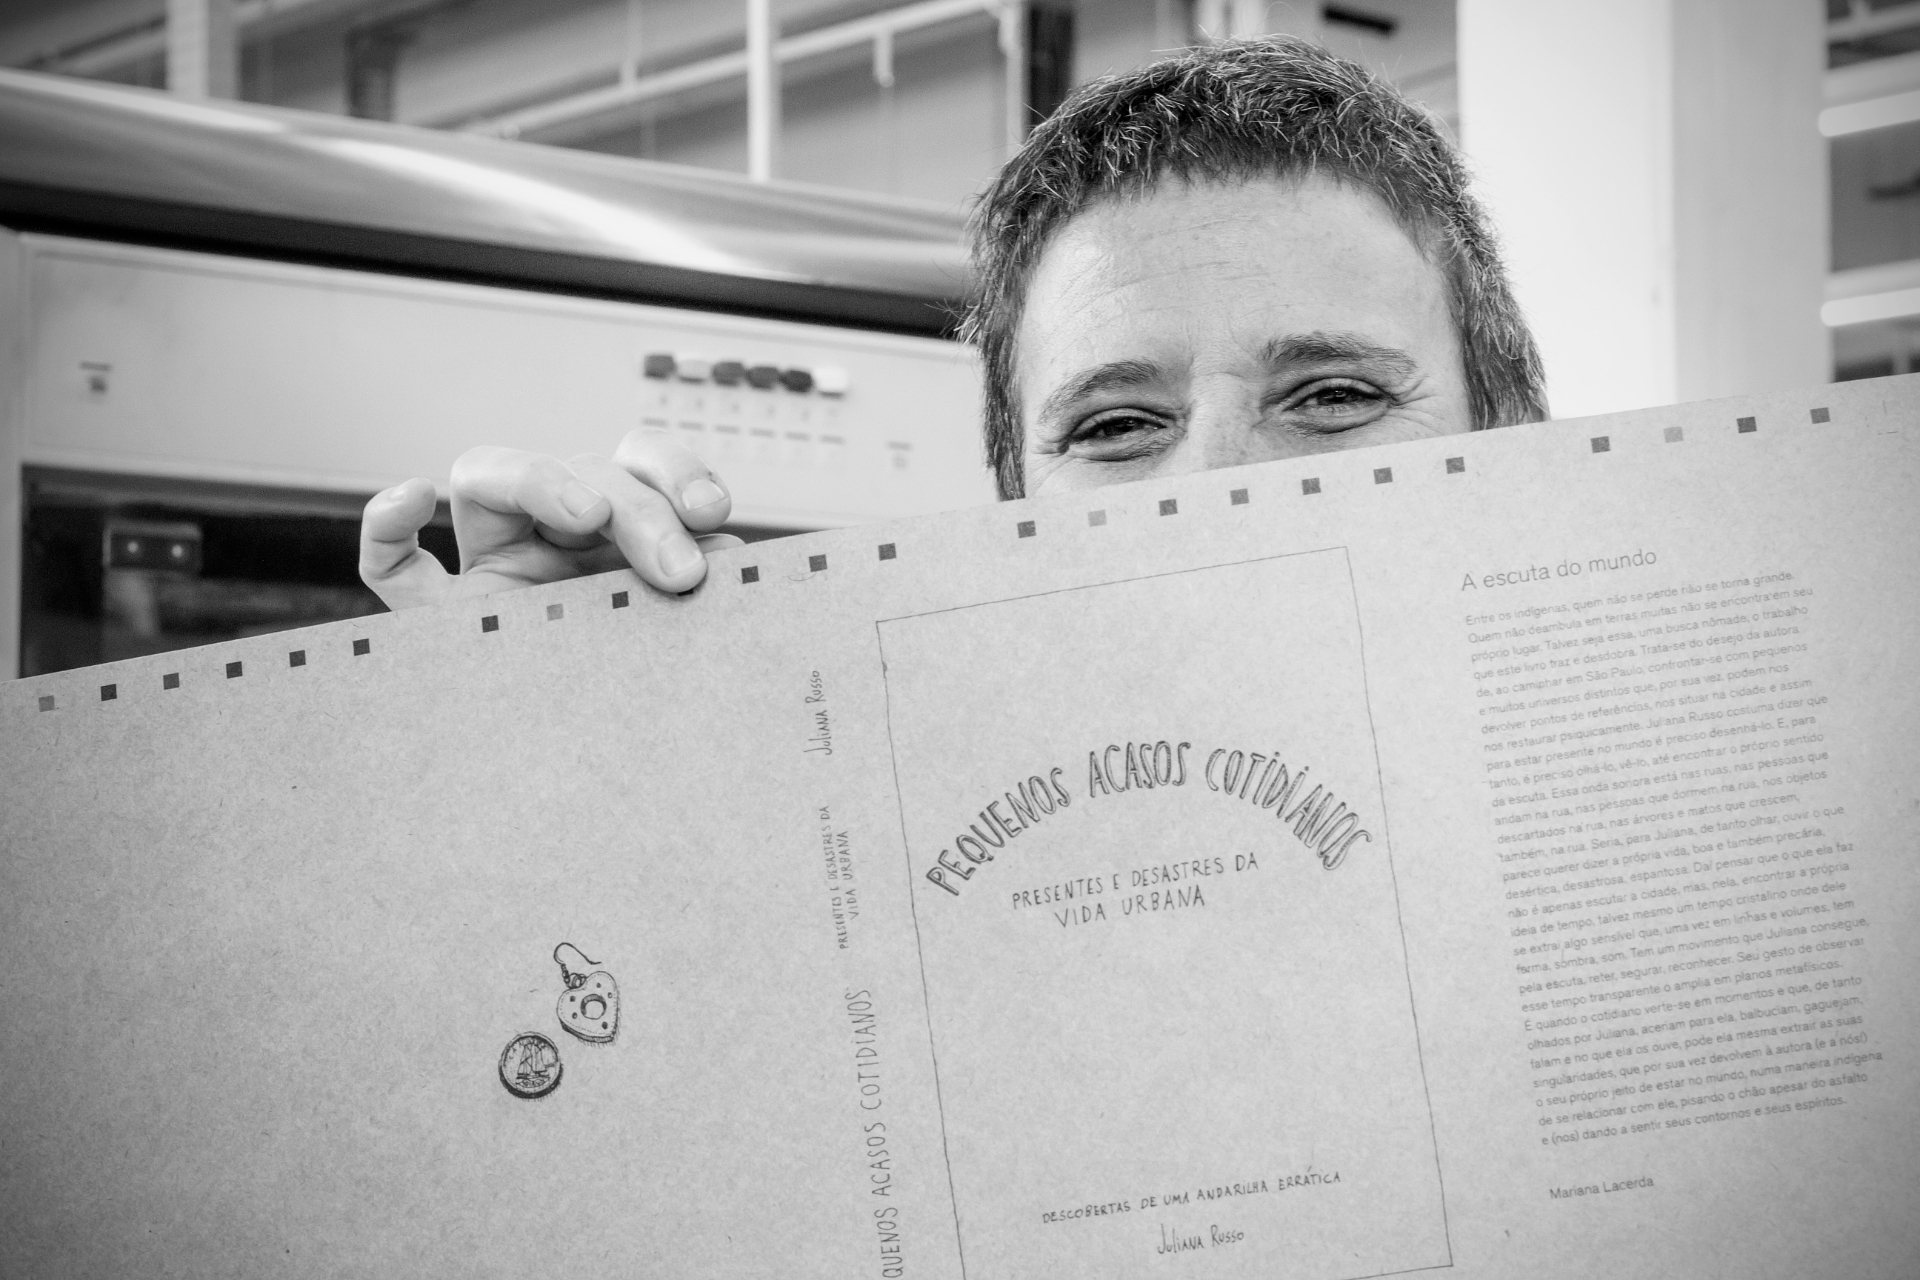 Juliana Russo
PRESENTES E DESASTRES DA
VIDA URBANA
QUENOS ACASOS COTIDIANOS
PEQUENOS ACASOS COTIDIANOS
PRESENTES E DESASTRES DA
VIDA URBANA
DESCOBERTAS DE UMA ANDARILHA ERRÁTICA
Juliana Russo
A escuta do mundo
Entre os indígenas, quem não se perde não se torna grande.
Quem não deambula em terras muitas não se encontra em seu
próprio lugar. Talvez seja essa, uma busca nômade, o trabalho
que este livro traz e desdobra. Trata-se do desejo da autora
de, ao caminhar em São Paulo, confrontar-se com pequenos
e muitos universos distintos que, por sua vez, podem nos
devolver pontos de referências, nos situar na cidade e assim
nos restaurar psiquicamente. Juliana Russo costuma dizer que
para estar presente no mundo é preciso desenhá-lo. E, para
tanto, é preciso olhá-lo, vê-lo, até encontrar o próprio sentido
da escuta. Essa onda sonora está nas ruas, nas pessoas que
andam na rua, nas pessoas que dormem na rua, nos objetos
descartados na rua, nas árvores e matos que crescem,
também, na rua. Seria, para Juliana, de tanto olhar, ouvir o que
parece querer dizer a própria vida, boa e também precária,
desértica, desastrosa, espantosa. Daí pensar que o que ela faz
não é apenas escutar a cidade, mas, nela, encontrar a própria
ideia de tempo, talvez mesmo um tempo cristalino onde dele
se extrai algo sensível que, uma vez em linhas e volumes, tem
forma, sombra, som. Tem um movimento que Juliana consegue,
pela escuta, reter, segurar, reconhecer. Seu gesto de observar
esse tempo transparente o amplia em planos metafísicos.
É quando o cotidiano verte-se em momentos e que, de tanto
olhados por Juliana, acenam para ela, balbuciam, gaguejam,
falam e no que ela os ouve, pode ela mesma extrair as suas
singularidades, que por sua vez devolvem à autora (e a nós!)
o seu próprio jeito de estar no mundo, numa maneira indígena
de se relacionar com ele, pisando o chão apesar do asfalto
e (nos) dando a sentir seus contornos e seus espíritos.
Mariana Lacerda